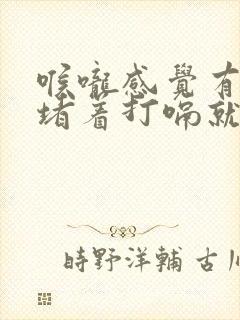 喉嚨感覺有
堵着打嗝就
時野洋輔 古川